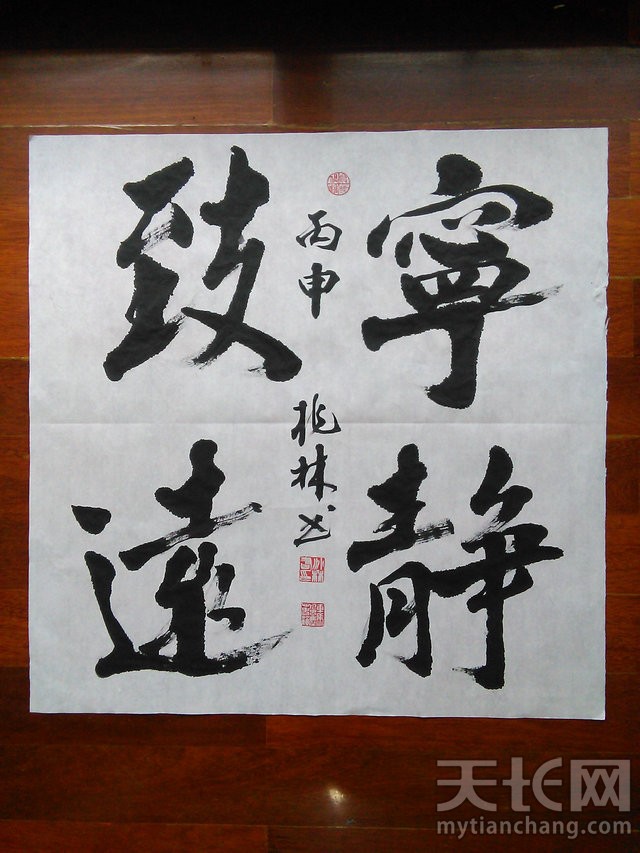 寧靜
致遠
丙申
桃林书
天长网
mytianchang.com